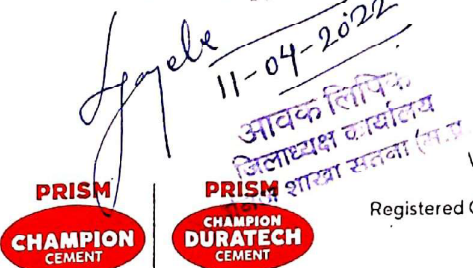 11-04-2022
आवक लिपिक
जिलाध्यक्ष कार्यालय
शाखा सतना (म.प्र.
PRISM
CHAMPION
CEMENT
PRISM
CHAMPION
DURATECH
CEMENT
Registered